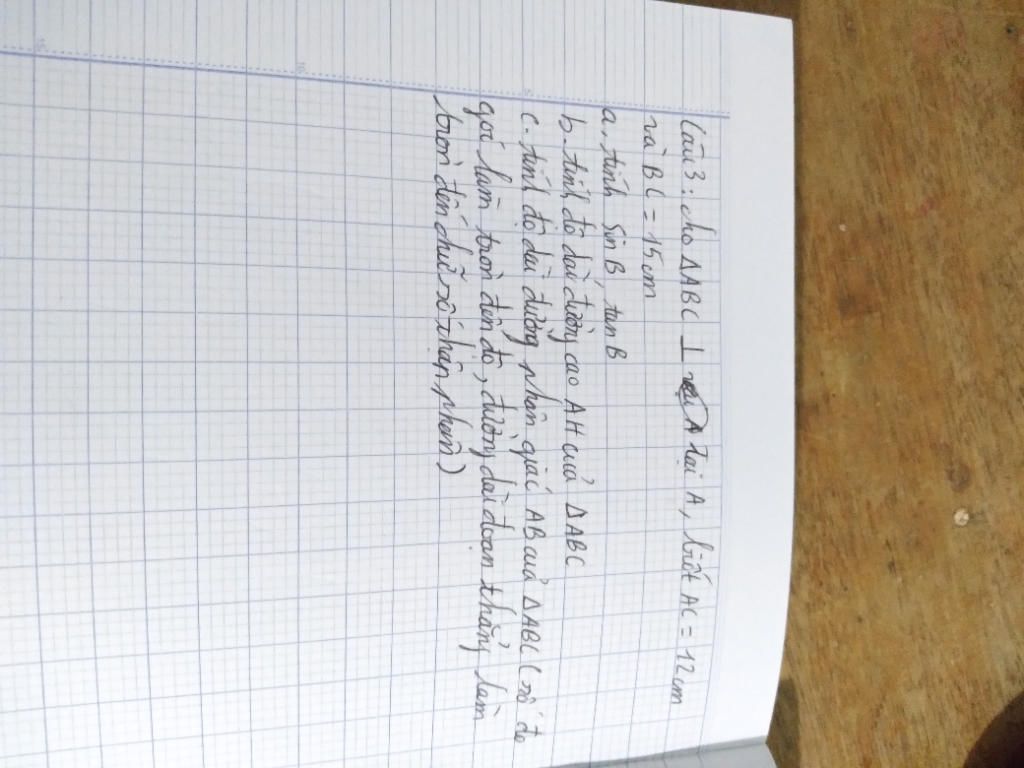 Câu 3: cho ΔABC ⊥ A tại A, biết AC = 12 cm
và BC = 15 cm
a, tính sin B, tan B
b. tính độ dài đường cao AH của ΔABC
c. tính độ dài đường phân giác AB của ΔABC (số đo
góc làm tròn đến độ, đường dài đoạn thẳng làm
tròn đến chữ số thập phân)